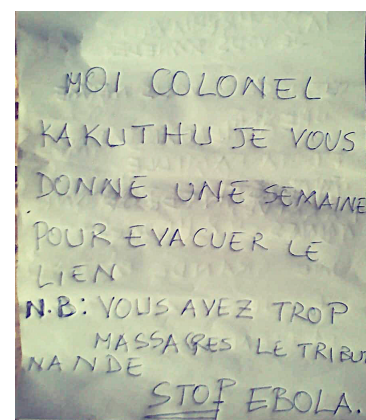 MOI COLONEL
KAKUTHU JE VOUS
DONNE UNE SEMAINE
POUR EVACUER LE
LIEN
N.B: VOUS AVEZ TROP
MASSACRES LE TRIBU
NANDE
STOP EBOLA.